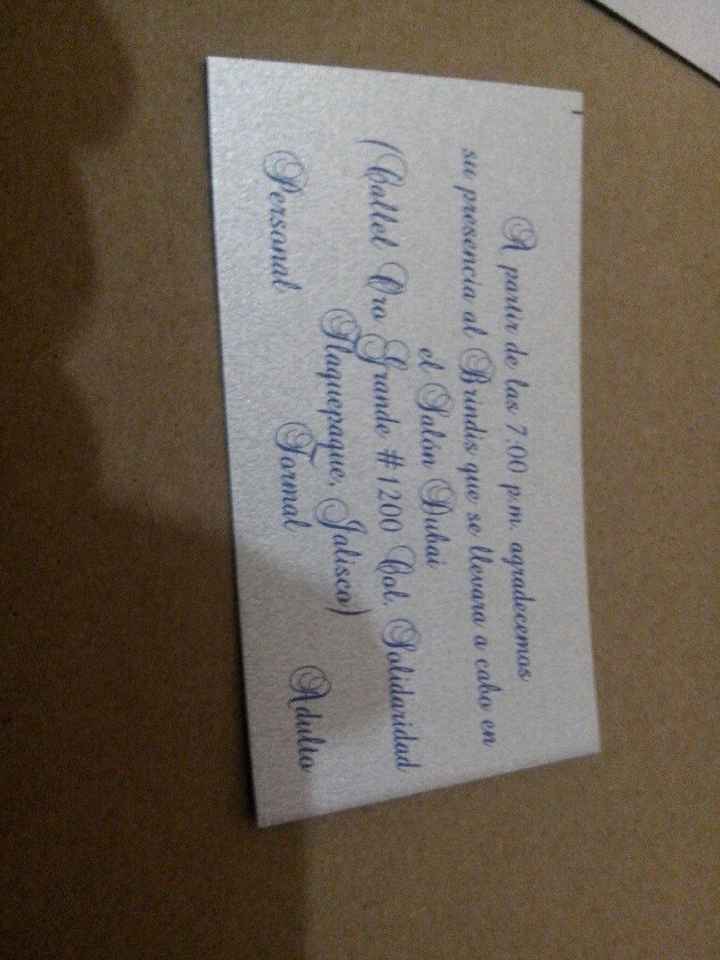 A partir de las 7:00 p.m. agradecemos
su presencia al Brindis que se llevara a cabo en
el Salón Dubai
(Callel Oro Grande #1200 Col. Solidaridad
Tlaquepaque, Jalisco)
Personal Formal Adulto